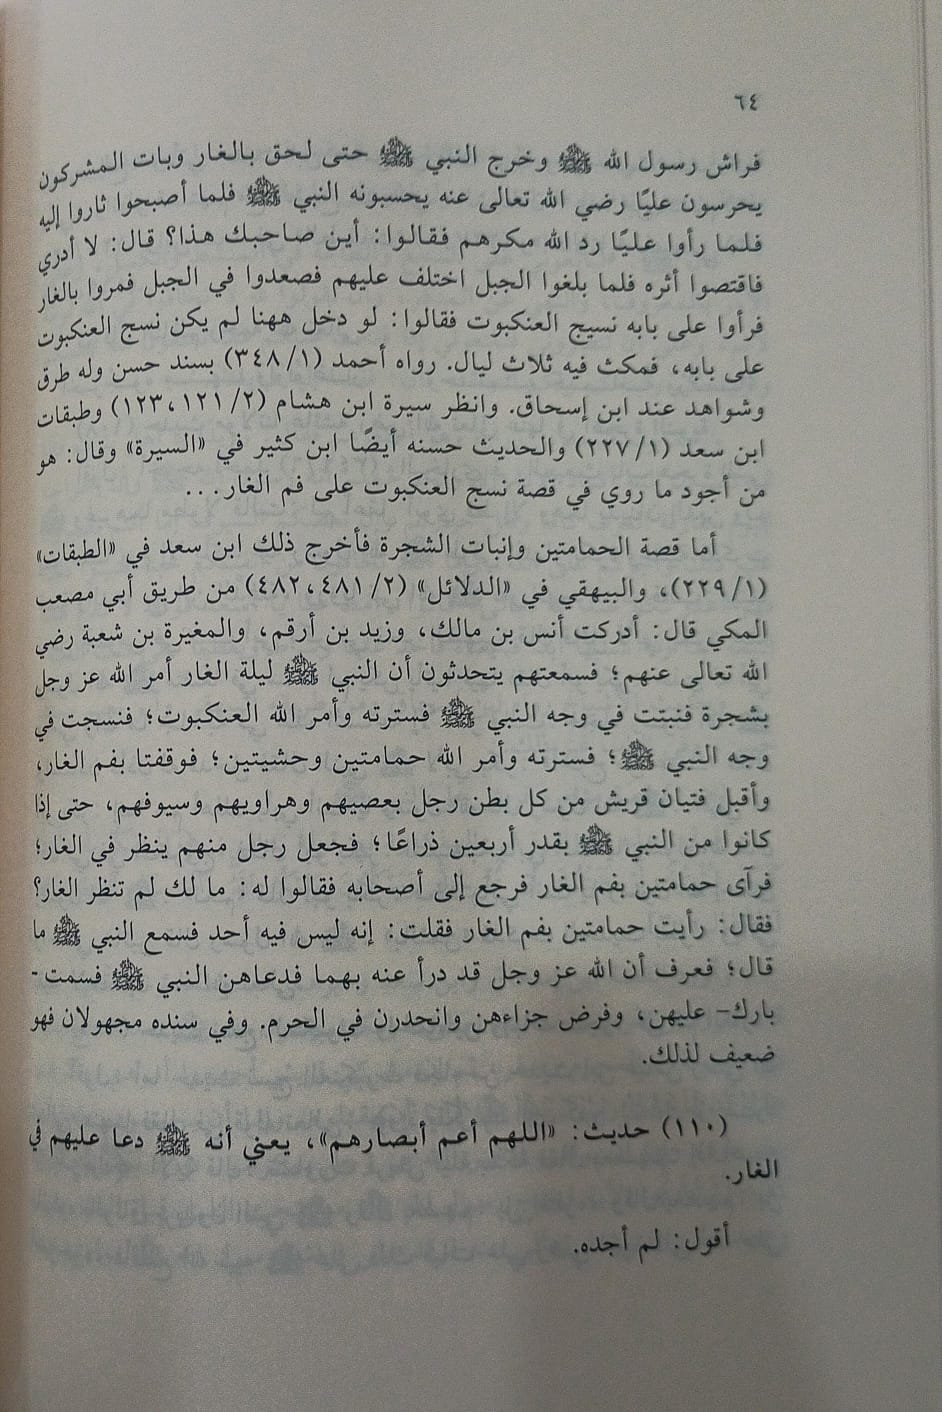 ٦٤
فراش رسول الله ﷺ وخرج النبي ﷺ حتى لحق بالغار وبات المشركون
يحرسون عليًا رضي الله تعالى عنه يحسبونه النبي ﷺ فلما أصبحوا ثاروا إليه
فلما رأوا عليًا رد الله مكرهم فقالوا: أين صاحبك هذا؟ قال: لا أدري
فاقتصوا أثره فلما بلغوا الجبل اختلف عليهم فصعدوا في الجبل فمروا بالغار
فرأوا على بابه نسيج العنكبوت فقالوا: لو دخل ههنا لم يكن نسج العنكبوت
على بابه، فمكث فيه ثلاث ليال. رواه أحمد (٣٤٨/١) بسند حسن وله طرق
وشواهد عند ابن إسحاق. وانظر سيرة ابن هشام (١٢٣،١٢١/٢) وطبقات
ابن سعد (٢٢٧/١) والحديث حسنه أيضًا ابن كثير في «السيرة» وقال: هو
من أجود ما روي في قصة نسج العنكبوت على فم الغار...
أما قصة الحمامتين وإنبات الشجرة فأخرج ذلك ابن سعد في «الطبقات»
(٢٢٩/١)، والبيهقي في «الدلائل» (٤٨٢،٤٨١/٢) من طريق أبي مصعب
المكي قال: أدركت أنس بن مالك، وزيد بن أرقم، والمغيرة بن شعبة رضي
الله تعالى عنهم؛ فسمعتهم يتحدثون أن النبي ﷺ ليلة الغار أمر الله عز وجل
بشجرة فنبتت في وجه النبي ﷺ فسترته وأمر الله العنكبوت؛ فنسجت في
وجه النبي ﷺ؛ فسترته وأمر الله حمامتين وحشيتين؛ فوقفتا بفم الغار،
وأقبل فتيان قريش من كل بطن رجل بعصيهم وهراويهم وسيوفهم، حتى إذا
كانوا من النبي ﷺ بقدر أربعين ذراعًا؛ فجعل رجل منهم ينظر في الغار؛
فرآى حمامتين بفم الغار فرجع إلى أصحابه فقالوا له: ما لك لم تنظر الغار؟
فقال: رأيت حمامتين بفم الغار فقلت: إنه ليس فيه أحد فسمع النبي ﷺ ما
قال؛ فعرف أن الله عز وجل قد درأ عنه بهما فدعاهن النبي ﷺ فسمت -
بارك- عليهن، وفرض جزاءهن وانحدرن في الحرم. وفي سنده مجهولان فهو
ضعيف لذلك.
(١١٠) حديث: «اللهم أعم أبصارهم»، يعني أنه ﷺ دعا عليهم في
الغار.
أقول: لم أجده.